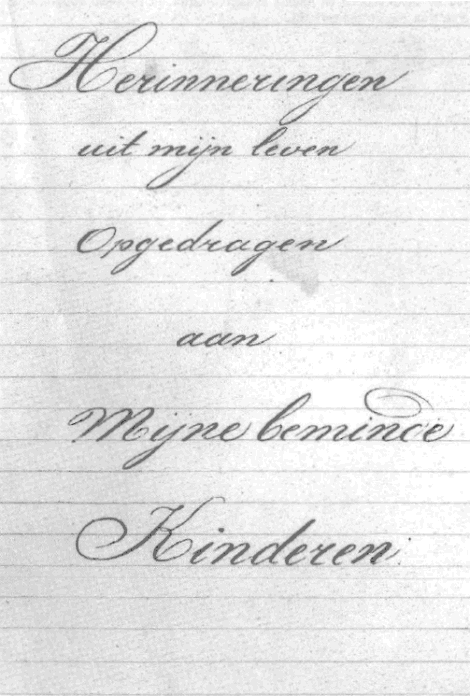 Herinneringen
uit mijn leven
Opgedragen
aan
Mijne beminde
Kinderen.